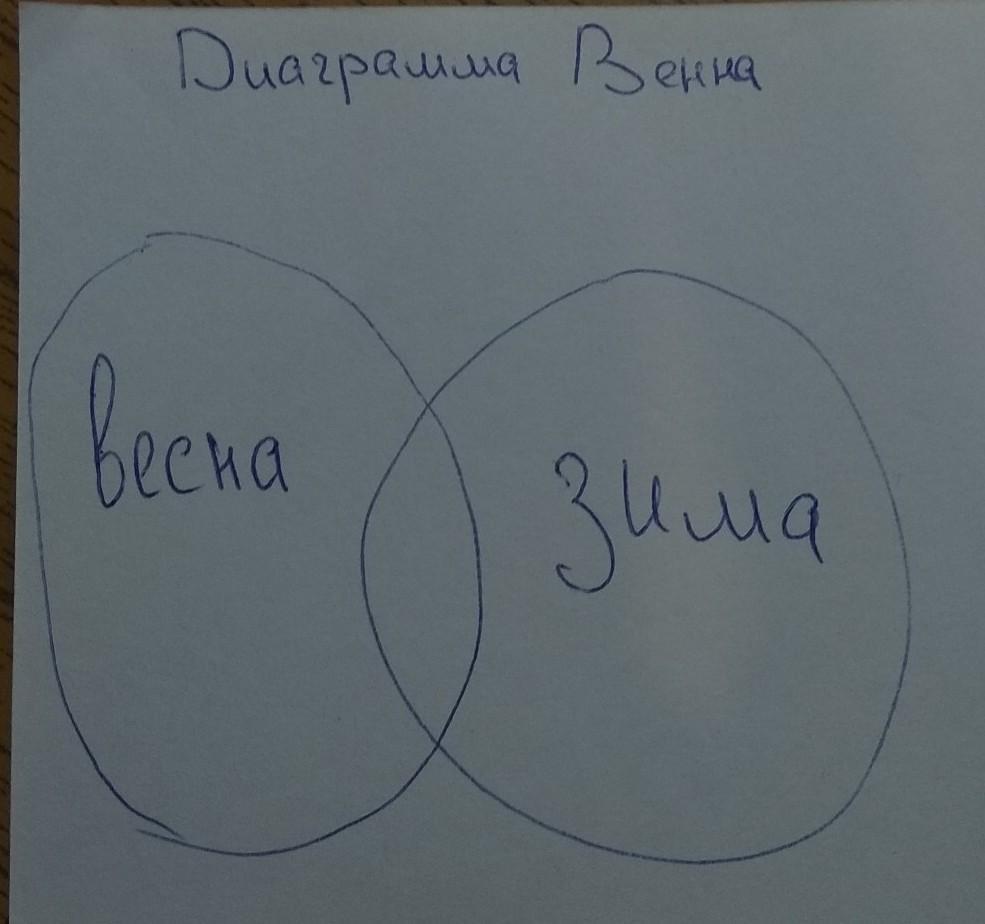 Диаграмма Венна
весна
Зима